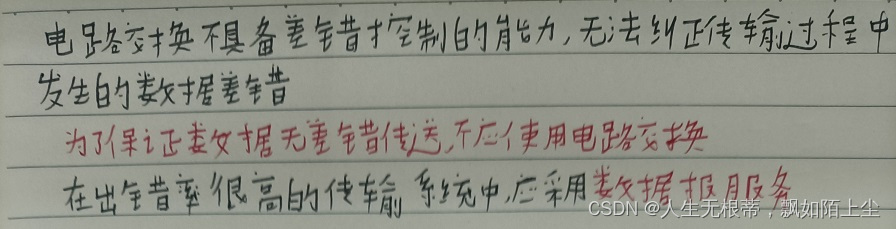 电路交换不具备差错控制的能力,无法纠正传输过程中
发生的数据差错
为了保证数据无差错传送,不应使用电路交换
在出错率很高的传输系统中,应采用数据报服务
CSDN @人生无根蒂，飘如陌上尘